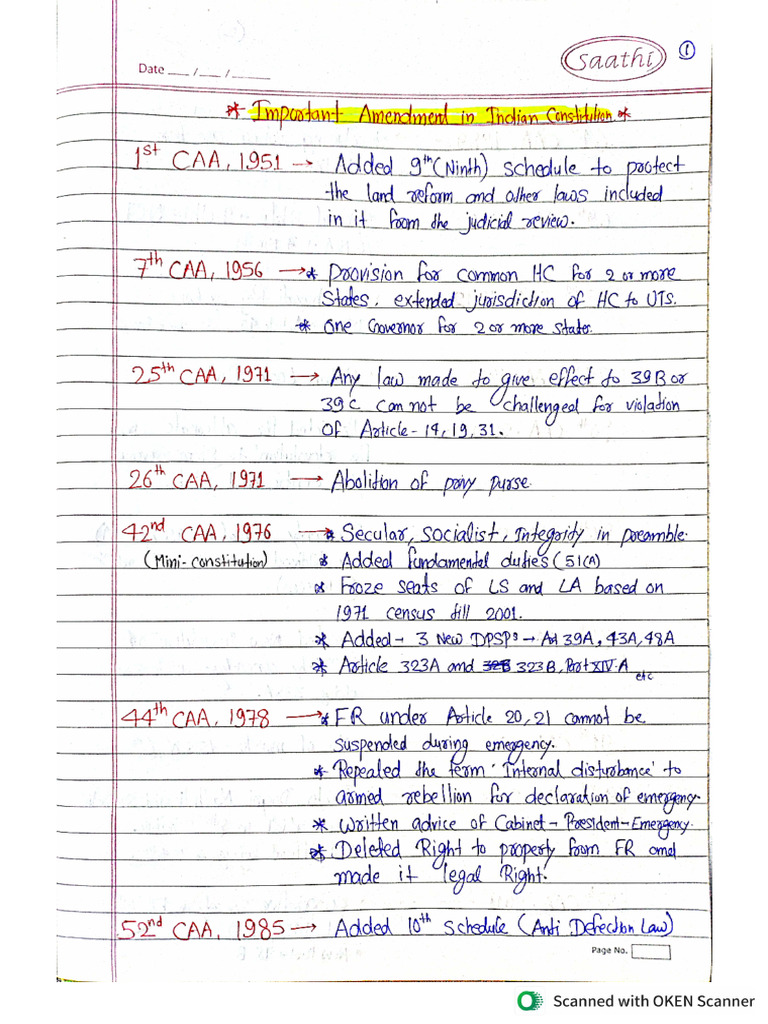 saathi ①
Date ___/___/_____
* Important Amendment in Indian Constitution *
1st CAA, 1951 → Added 9th (Ninth) Schedule to protect
the land reform and other laws included
in it from the judicial review.
7th CAA, 1956 → * Provision for common HC for 2 or more
States, extended jurisdiction of HC to UTs.
* One Governor for 2 or more states.
25th CAA, 1971 → Any law made to give effect to 39B or
39C can not be challenged for violation
of Article - 14, 19, 31.
26th CAA, 1971 → Abolition of privy purse.
42nd CAA, 1976 → * Secular, Socialist, Integrity in preamble.
(Mini-constitution) * Added fundamental duties (51(A)
* Froze seats of LS and LA based on
1971 census till 2001.
* Added - 3 New DPSPs - Art 39A, 43A, 48A
* Article 323A and 323B, Part XIV-A etc
44th CAA, 1978 → * FR under Article 20, 21 cannot be
suspended during emergency.
* Repealed the term 'Internal disturbance' to
armed rebellion for declaration of emergency.
* Written advice of Cabinet - President - Emergency.
* Deleted Right to property from FR and
made it legal Right.
52nd CAA, 1985 → Added 10th Schedule (Anti Defection Law)
Page No.
Scanned with OKEN Scanner